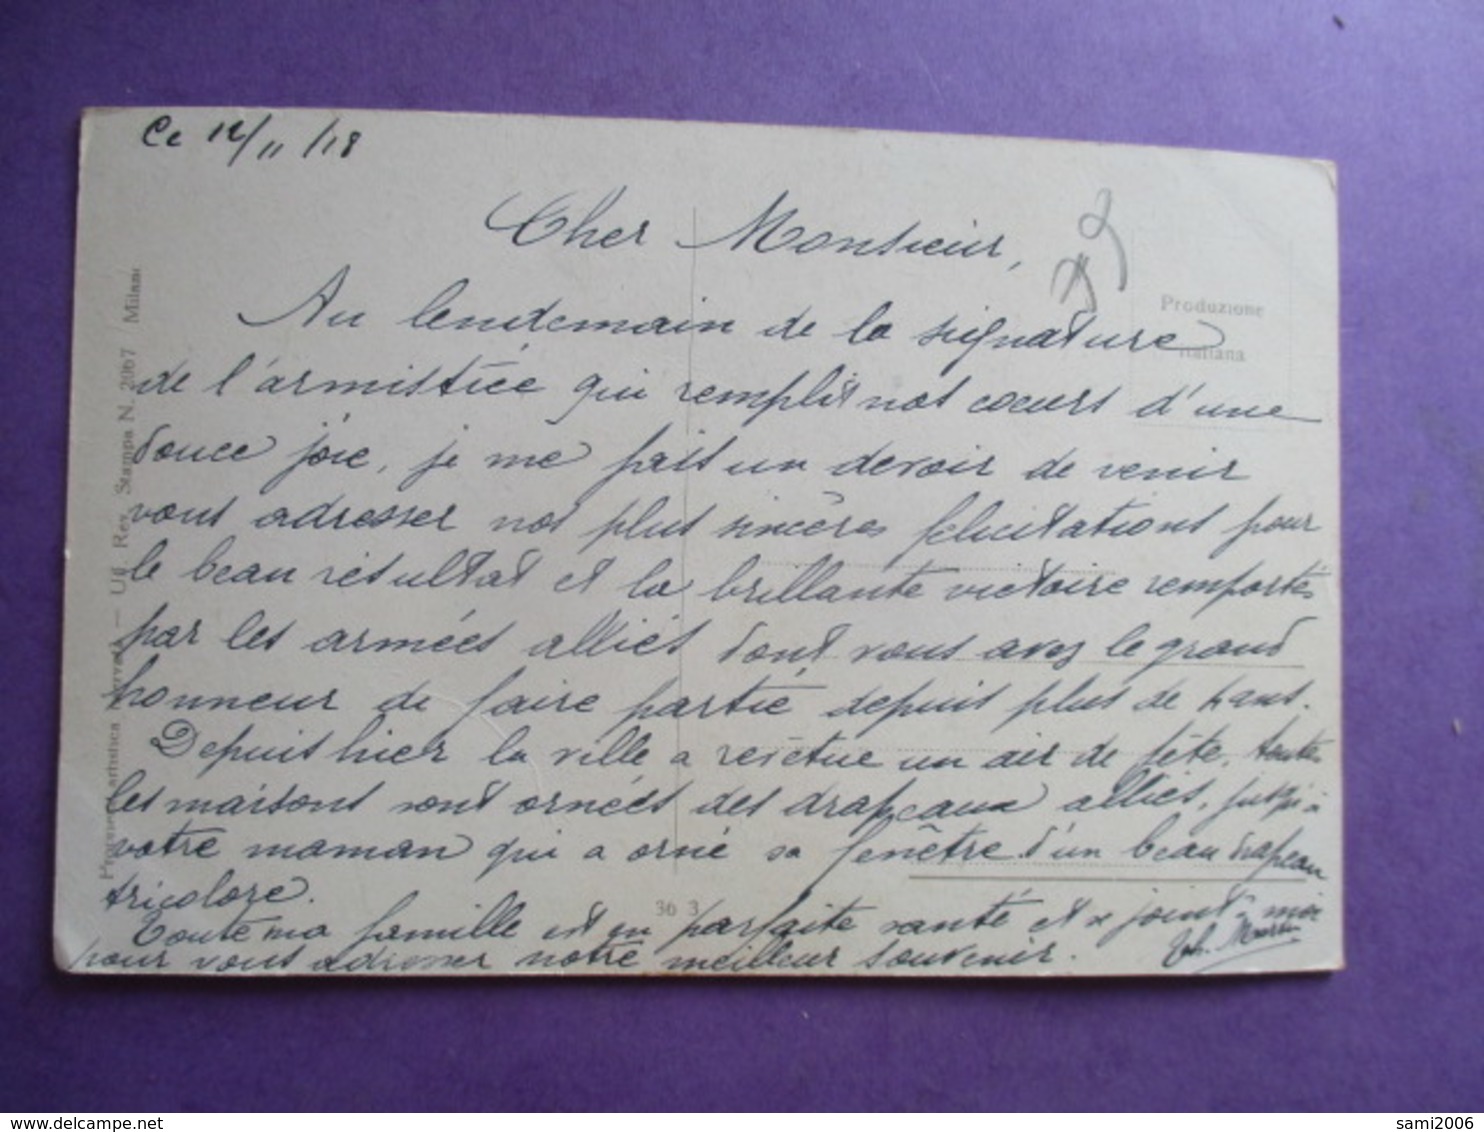 Ce 12/11/18
Cher Monsieur,
Au lendemain de la signature
de l'armistice qui remplit nos coeurs d'une
douce joie, je me fait un devoir de venir
vous adresser nos plus sincères felicitations pour
le beau résultat et la brillante victoire remportés
par les armées alliés dont vous avez le grand
honneur de faire partie depuis plus de 4 ans.
Depuis hier la ville a revêtue un air de fête, toutes
les maisons sont ornées des drapeaux alliés, jusqu'à
votre maman qui a orné sa fenêtre d'un beau drapeau
tricolore.
Toute ma famille est en parfaite santé et se joint à moi
pour vous adresser notre meilleur souvenir.
Produzione
italiana
36 3
Proprietà artistica riservata — Uff. Rev. Stampa N. 2967 Milano
sami2006